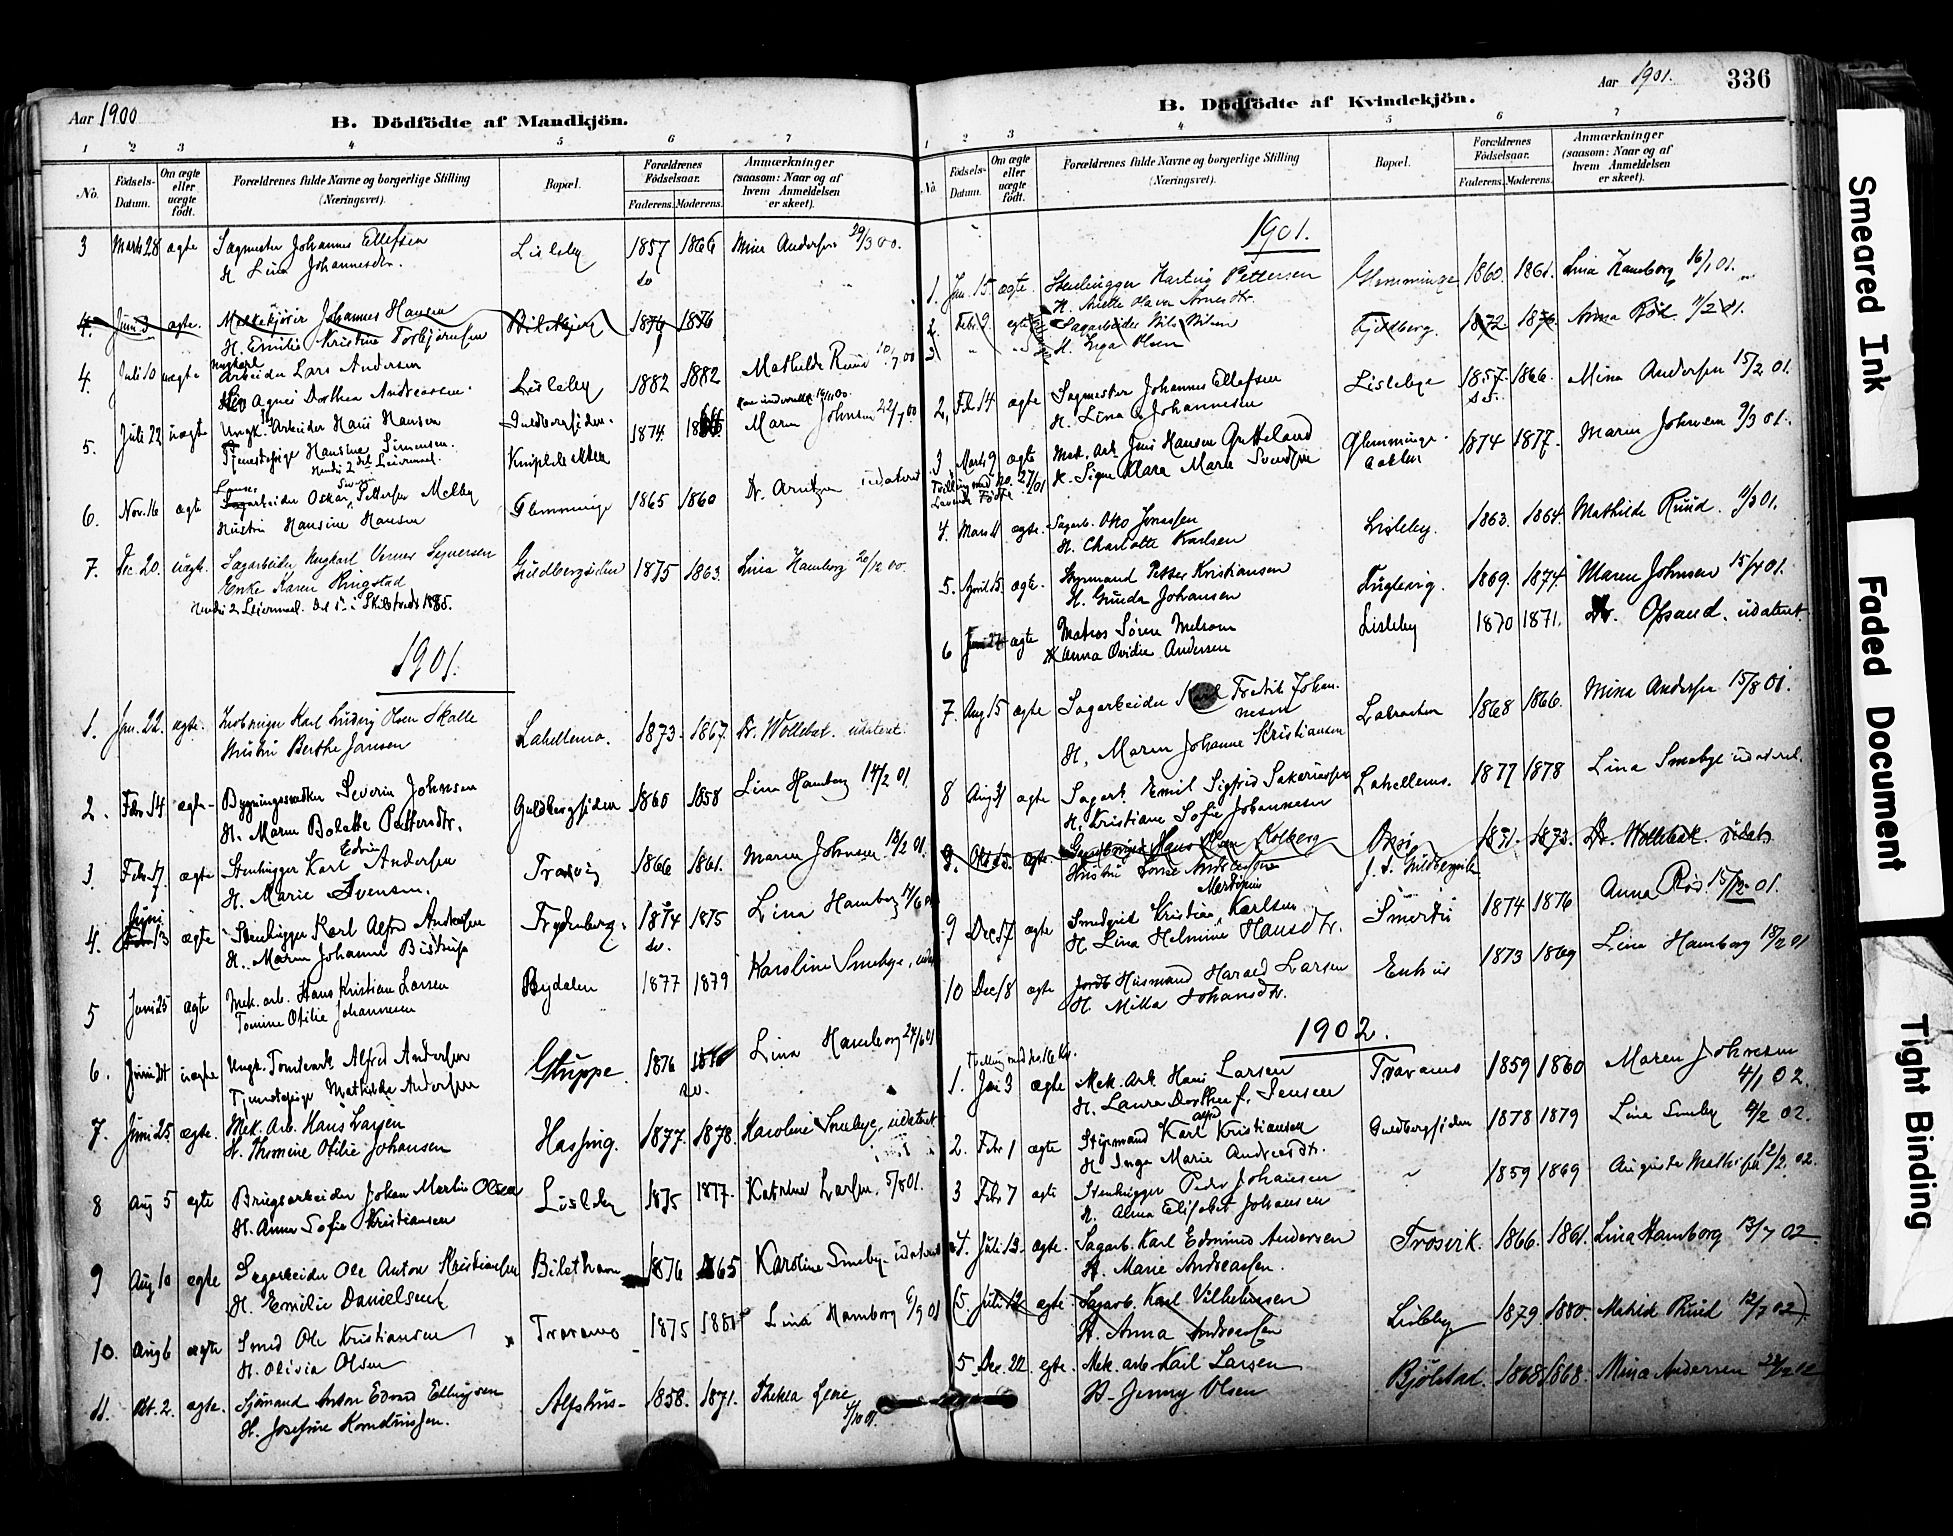 Aar 1900
B. Dödfödte af Mandkjön.
1 2 3 4 5 6 7
No.
Födsels-Datum.
Om ægte eller uægte født.
Forældrenes fulde Navne og borgerlige Stilling (Næringsvei).
Bopæl.
Forældrenes Födselsaar.
Faderens. Moderens.
Anmærkninger (saasom: Naar og af hvem Anmeldelsen er skeet).
3 Marts 28 ægte Sagmester Johannes Ellefsen Lisleby 1857 1866 Mina Andersen 29/3 00.
H. Lina Johannesdtr. do
4. Juni 3 ægte. Melkekjører Johannes Hansen 1874 1876
H. Emilie Kristine Torbjørnsen
4. Juli 10 uægte Ungkarl Arbeider Lars Andersen Lisleby 1882 1882 Mathilde Ruud 10/7 00
Agnes Dorthea Andreassen
5. Juli 22 uægte Ungk. Arbeider Hans Hansen Guldbergsiden. 1874 Maren Johnsen 22/7 00.
Tjenestepige Hansine Simensen.
Hendes 2det Leiermaal.
6. Nov. 16 ægte Oskar Pettersen Melby Glemminge 1865 1860 Dr. Arntzen udateret
Hustru Hansine Hansen
7. Dec. 20. uægt. Sagarbeider Ungkarl Verner Syversen Guldbergsiden 1875 1863. Lina Hamborg 20/12 00.
Enke Karen Ringstad
Hendes 2 Leiermaal. Det 1ste i Skibtvedt 1885.
1901.
1. Jan. 22. ægte. Karl Ludvig Olsen Skalle Lahellemo. 1873. 1867. Dr. Wollebæk. udateret.
Hustru Berthe Jansen
2. Febr 14 ægte Bygningssnedker Severin Johnsen Guldbergsiden 1860 1858 Lina Hamborg 14/2 01
H. Maren Bolette Pettersdtr.
3. Febr. 17. ægte Stenhugger Karl Edvin Andersen Trosvig 1866 1861. Maren Johnsen 18/2 01.
H. Marie Svensen.
4. Juni 13 ægte Stenhugger Karl Alfred Andersen Frydenberg. 1874 1875 Lina Hamborg
H. Maren Johanne Bistrup do.
5 Juni 25 ægte Mek. arb. Hans Kristian Larsen Rydalen 1877 1879 Karoline Smebye,
Tomine Otilie Johannesen
6. Juni 24 uægte Ungk. Tomtearb. Alfred Andersen Gluppe 1876 Lina Hamborg 24/6 01
Tjenestepige Mathilde Andersen do.
7. Juni 25 ægte. Mek. Arb. Hans Larsen Hassing. 1877. 1878. Karoline Smebye, udateret
H. Thomine Otilie Johansen
8 Aug 5 ægte Brugsarbeider Johan Martin Olsen Lisleby 1875 1877. Katrine Larsen. 5/8 01.
H. Anna Sofie Kristiansen
9 Aug 10 ægte Sagarbeider Ole Anton Kristiansen 1876 1865 Karoline Smeby udateret
H. Emilie Danielsen
10. Aug 6 ægte Smed Ole Kristiansen Traramo 1875 1880 Lina Hamborg 6/9 01
H. Olivia Olsen
11. Okt. 2. ægte. Sjømand Anton Edvard Ellingsen Alfshus 1858. 1871. Thekla Lene 4/10 01.
H. Josefine Korneliussen.
Aar 1901. 336
B. Dödfödte af Kvindekjön.
1 2 3 4 5 6 7
No.
Födsels-Datum.
Om ægte eller uægte födt.
Forældrenes fulde Navne og borgerlige Stilling (Næringsvei).
Bopæl.
Forældrenes Födselsaar.
Faderens. Moderens.
Anmærkninger (saasom: Naar og af hvem Anmeldelsen er skeet).
1901.
1. Jan. 15 ægte. Stenhugger Hartvig Pettersen Glemminge 1860. 1861. Lina Hamborg 16/1 01.
H. Anette Olava Arnesdtr.
2. Febr. 9. ægte Sagarbeider Nils Nilsen Fjeldberg. 1872 1876. Anna Röd. 11/2 01.
3 " " H. Inga Olsen
2, Febr 14 ægte Sagmester Johannes Ellefsen Lislebye 1857. 1866. Mina Andersen 15/2 01.
H. Lina Johannesen
3 Marts 9 ægte Mek. Arb. Jens Hansen Glemminge 1874 1877. Maren Johnsen 9/3 01.
H. Signe Klara Marie Svendsen
Tvilling med No. 27/01
Levende Fødte
4. Mars 11 ægte. Sagarb. Otto Jonassen Lisleby. 1863. 1864. Mathilde Ruud. 11/3 01.
H. Charlotte Karlsen
5. April 15. ægte. Styrmand Petter Kristiansen Fuglevig. 1869. 1874. Maren Johnsen 15/4 01.
H. Gunda Johansen
6 Juni 27 ægte Matros Søren Melsom Lisleby 1870 1871. Dr. Opsand. udateret.
H. Anna Ovidia Andersen
7. Aug 15 ægte Sagarbeider Karl Fredrik Johannesen Labraaten 1868 1866. Mina Andersen 15/8 01.
H. Maren Johanne Kristiansen
8 Aug 31 ægte Sagarb. Emil Sigfred Sakariassen Lahellemo. 1877 1878 Lina Smebye udateret.
H. Kristiane Sofie Johannesen
9. Okt 13. ægte. Hans Olsen Kolberg 1871. 1873. Dr. Wollebæk udat.
9 Dec. 17 ægte Smedgut Kristian Martinius Karlsen Smertu 1874 1876 Anna Röd. 15/12 01.
H Lina Helmine Hansdtr.
10 Dec. 18 ægte Husmand Harald Larsen Enhus 1873 1869 Lina Hamborg 18/12 01
H. Milla Johansdtr.
1902.
Tvilling med
1. Jan 3 ægte Mek. Arb Hans Larsen Traramo 1859 1860 Maren Johnsen 4/1 02.
H. Laura Dorthea f. Jensen
2. Febr 1 ægte Styrmand Karl Alfred Kristiansen Guldbergsiden 1878 1879 Lina Smeby 4/2 02.
H Inga Marie Andreasdtr.
3 Febr 7 ægte Stenhugger Peder Johansen " 1859 1869 Augusta 12/2 02.
H. Anna Elisabet Johansen
4. Juli 13. ægte. Sagarb. Karl Edmund Andersen Trosvik. 1866. 1861. Lina Hamborg 13/7 02
H. Marie Andreassen.
(5. Juli 12 ægte Sagarb. Karl Vilhelmsen Lisleby 1879 1880. Matild Ruud 12/7 02)
H. Anna Andreassen
5 Dec. 22. ægte. Mek. arb Karl Larsen Bjölstad. 1868 1868. Mina Andersen 22/12 02
H. Jenny Olsen
Smeared Ink
Faded Document
Tight Binding